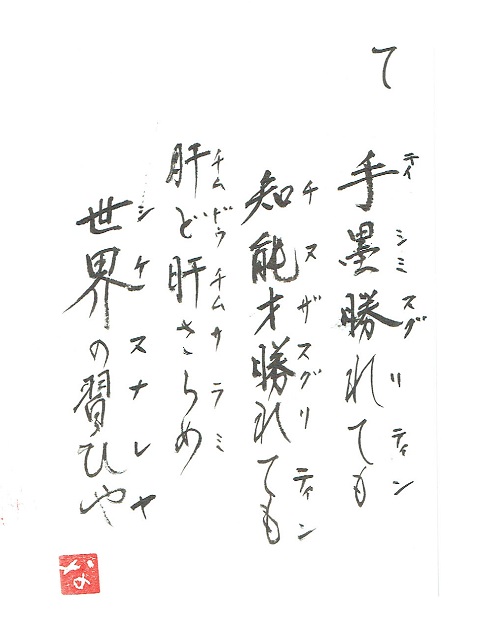 て
手墨勝れても
ティシミスグリティン
知能才勝れても
チヌザスグリティン
肝ど肝さらめ
チムドゥチムサラミ
世界の習ひや
シケヌナレヤ